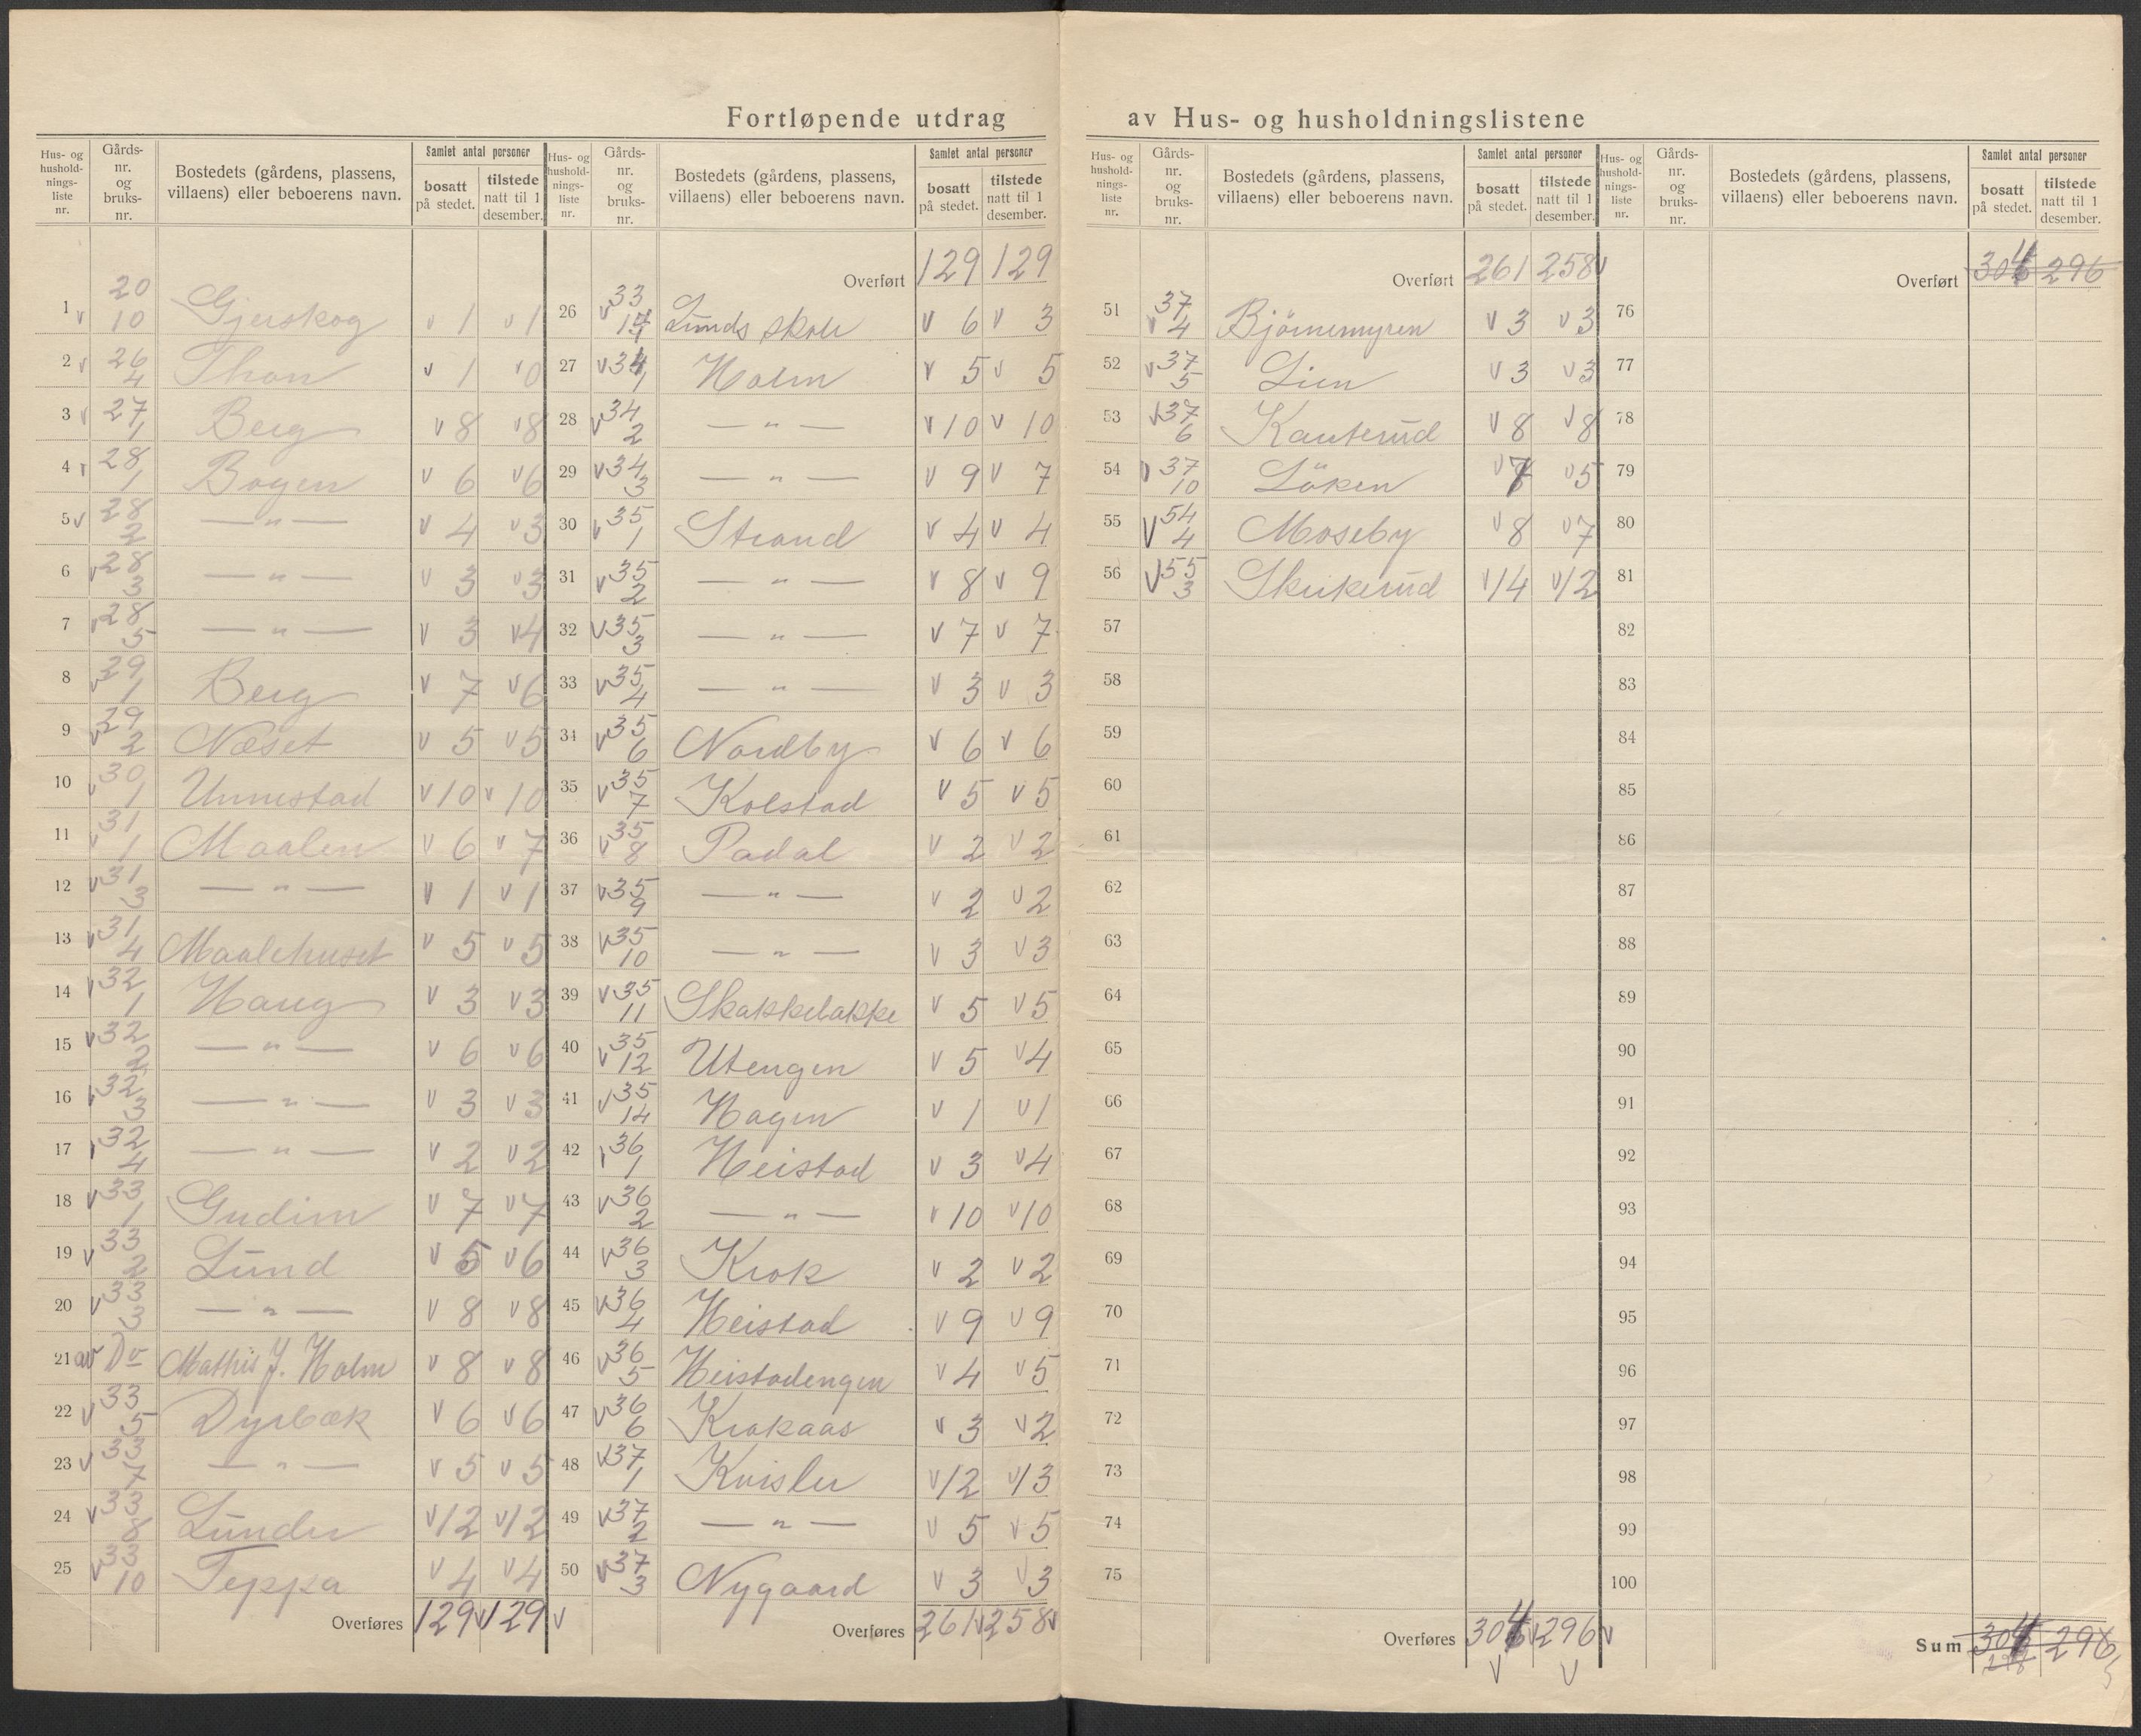 Fortløpende utdrag av Hus- og husholdningslistene
Hus- og hushold-nings-liste nr. | Gårds-nr. og bruks-nr. | Bostedets (gårdens, plassens, villaens) eller beboerens navn. | Samlet antal personer | bosatt på stedet. | tilstede natt til 1 desember.
1 v 20 10 Gjerskog v 1 v 1
2 v 26 4 Thon v 1 v 0
3 v 27 1 Berg v 8 v 8
4 v 28 1 Bogen v 6 v 6
5 v 28 2 — " — v 4 v 3
6 v 28 3 — " — v 3 v 3
7 v 28 5 — " — v 3 v 4
8 v 29 1 Berg v 7 v 6
9 v 29 2 Næset v 5 v 5
10 v 30 1 Unnestad v 10 v 10
11 v 31 1 Maalen v 6 v 7
12 v 31 3 — " — v 1 v 1
13 v 31 4 Maalehuset v 5 v 5
14 v 32 1 Haug v 3 v 3
15 v 32 2 — " — v 6 v 6
16 v 32 3 — " — v 3 v 3
17 v 32 4 — " — v 2 v 2
18 v 33 1 Gudim v 7 v 7
19 v 33 2 Lund v 5 v 6
20 v 33 3 — " — v 8 v 8
21 av Do Mathis J. Holm v 8 v 8
22 v 33 5 Dyrbæk v 6 v 6
23 v 33 7 — " — v 5 v 5
24 v 33 8 Lunder v 12 v 12
25 v 33 10 Teppa v 4 v 4
Overføres 129 v 129 v
Hus- og hushold-nings-liste nr. | Gårds-nr. og bruks-nr. | Bostedets (gårdens, plassens, villaens) eller beboerens navn. | Samlet antal personer | bosatt på stedet. | tilstede natt til 1 desember.
Overført 129 129
26 v 33 Lunds skole v 6 v 3
27 v 34 1 Holm v 5 v 5
28 v 34 2 — " — v 10 v 10
29 v 34 3 — " — v 9 v 7
30 v 35 1 Strand v 4 v 4
31 v 35 2 — " — v 8 v 9
32 v 35 3 — " — v 7 v 7
33 v 35 4 — " — v 3 v 3
34 v 35 6 Nordby v 6 v 6
35 v 35 7 Kolstad v 5 v 5
36 v 35 8 Padal v 2 v 2
37 v 35 9 — " — v 2 v 2
38 v 35 10 — " — v 3 v 3
39 v 35 11 Skakkebakke v 5 v 5
40 v 35 12 Utengen v 5 v 4
41 v 35 14 Hagen v 1 v 1
42 v 36 1 Heistad v 3 v 4
43 v 36 2 — " — v 10 v 10
44 v 36 3 Krok v 2 v 2
45 v 36 4 Heistad v 9 v 9
46 v 36 5 Heistadengen v 4 v 5
47 v 36 6 Krokaas v 3 v 2
48 v 37 1 Kvisler v 12 v 13
49 v 37 2 — " — v 5 v 5
50 v 37 3 Nygaard v 3 v 3
Overføres 261 v 258 v
Hus- og hushold-nings-liste nr. | Gårds-nr. og bruks-nr. | Bostedets (gårdens, plassens, villaens) eller beboerens navn. | Samlet antal personer | bosatt på stedet. | tilstede natt til 1 desember.
Overført 261 258 v
51 v 37 4 Björnemyren v 3 v 3
52 v 37 5 Lien v 3 v 3
53 v 37 6 Kauterud v 8 v 8
54 v 37 10 Löken v 7 v 5
55 v 54 4 Moseby v 8 v 7
56 v 55 3 Skikerud v 14 v 12
57
58
59
60
61
62
63
64
65
66
67
68
69
70
71
72
73
74
75
Overføres 304 v 296 v
v v
Hus- og hushold-nings-liste nr. | Gårds-nr. og bruks-nr. | Bostedets (gårdens, plassens, villaens) eller beboerens navn. | Samlet antal personer | bosatt på stedet. | tilstede natt til 1 desember.
Overført 304 296
76
77
78
79
80
81
82
83
84
85
86
87
88
89
90
91
92
93
94
95
96
97
98
99
100
Sum 304 296